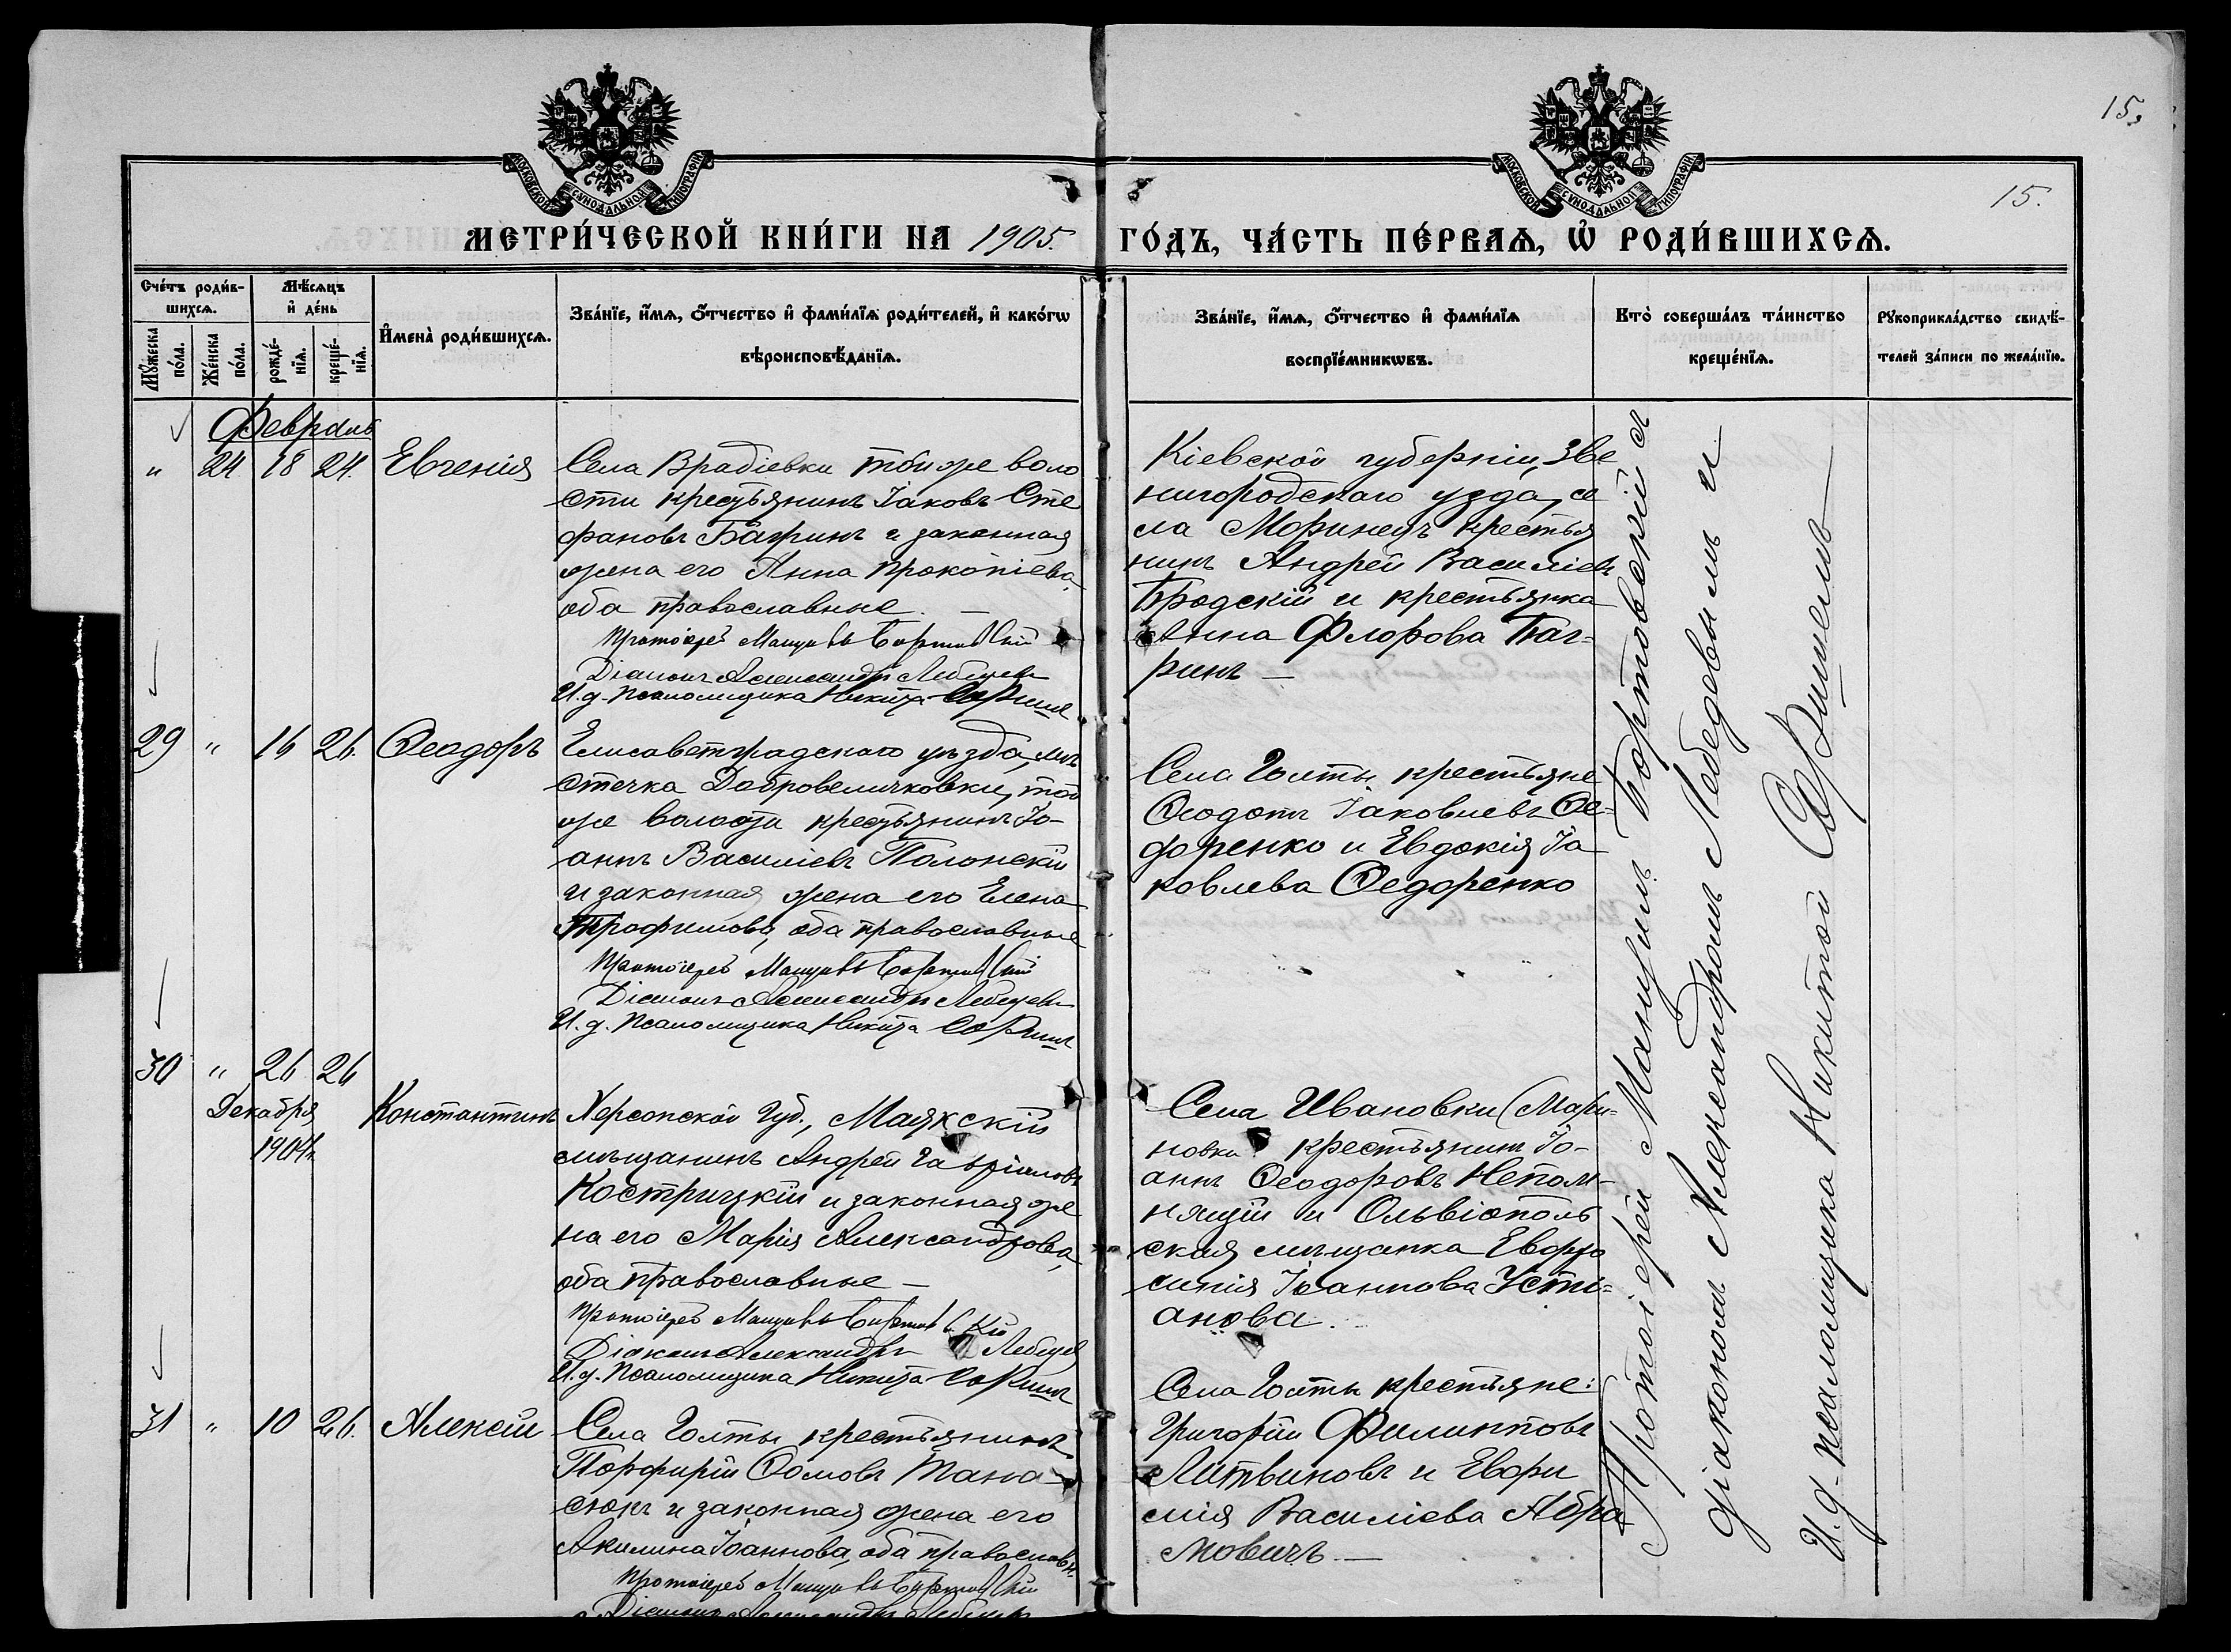 15.
15.
МОСКОВСКОЙ СѴНОДАЛЬНОЙ ТИПОГРАФІИ
МОСКОВСКОЙ СѴНОДАЛЬНОЙ ТИПОГРАФІИ
МЕТРИ́ЧЕСКОЙ КНИ́ГИ НА 1905. ГО́ДЪ, ЧА́СТЬ ПЕ́РВАѦ, Ѡ҆ РОДИ́ВШИХСѦ.
Сче́тъ роди́в-
шихсѧ.
Мꙋ́жеска по́ла.
Же́нска по́ла.
Мѣ́сѧцъ
и҆ де́нь
рожде́-
нїѧ.
креще́-
нїѧ.
И҆мена̀ роди́вшихсѧ.
Зва́нїе, и҆́мѧ, ѻ҆́тчество и҆ фами́лїѧ роди́телей, и҆ како́гѡ
вѣроисповѣ́данїѧ.
Зва́нїе, и҆́мѧ, ѻ҆́тчество и҆ фами́лїѧ
воспрїе́мникѡвъ.
Кто̀ соверша́лъ та́инство
креще́нїѧ.
Рꙋкоприкла́дство свидѣ́-
телей за́писи по жела́нїю.
Февраль
" 24 18 24. Евгенія
Села Врадіевки той же воло
сти крестьянинъ Іаковъ Сте
фановъ Багринъ и законная
жена его Анна Прокопіева,
оба православные. —
Протоіерей Мануилъ Бортовскій
Діаконъ Александръ Лебедевъ
И. д. Псаломщика Никита
Кіевской губерніи, Зве
нигородскаго уѣзда, се
ла Моринецъ крестья
нинъ Андрей Василіевъ
Бродскій и крестьянка
Анна Флорова Баг-
ринъ —
29 " 16 26. Ѳеодоръ
Елисаветградскаго уѣзда, мѣ
стечка Добровеличковки, той
же волости крестьянинъ Іо-
аннъ Василіевъ Полонскій
и законная жена его Елена
Трофимова, оба православные
Протоіерей Мануилъ Бортовскій
Діаконъ Александръ Лебедевъ
И. д. Псаломщика Никита
Села Голты крестьяне
Ѳеодотъ Іаковлевъ Ѳе-
доренко и Евдокія Іа
ковлева Ѳедоренко
30 " 26 26
Декабря
1904 г.
Константинъ
Херсонской Губ., Маякскій
мѣщанинъ Андрей Гавріиловъ
Костричкій и законная же
на его Марія Александрова,
оба православные —
Протоіерей Мануилъ Бортовскій
Діаконъ Александръ Лебедевъ
И. д. Псаломщика Никита
Села Ивановки (Мари-
новки крестьянинъ Іо-
аннъ Ѳеодоровъ Непом-
нящій и Ольвіополь
ская мѣщанка Евфро
синія Іоаннова Усті-
анова.
31 " 10 26. Алексій
Села Голты крестьянинъ
Порфирій Ѳомовъ Тана-
сюкъ и законная жена его
Акилина Іоаннова, оба православн.
Протоіерей Мануилъ Бортовскій
Діаконъ Александръ Лебедевъ
Села Голты крестьяне:
Григорій Филипповъ
Литвиновъ и Евфи
мія Василіева Абра
мовичъ. —
Протоіерей Мануилъ Бортовскій съ
діакономъ Александромъ Лебедевымъ и
И. д. псаломщика Никитой